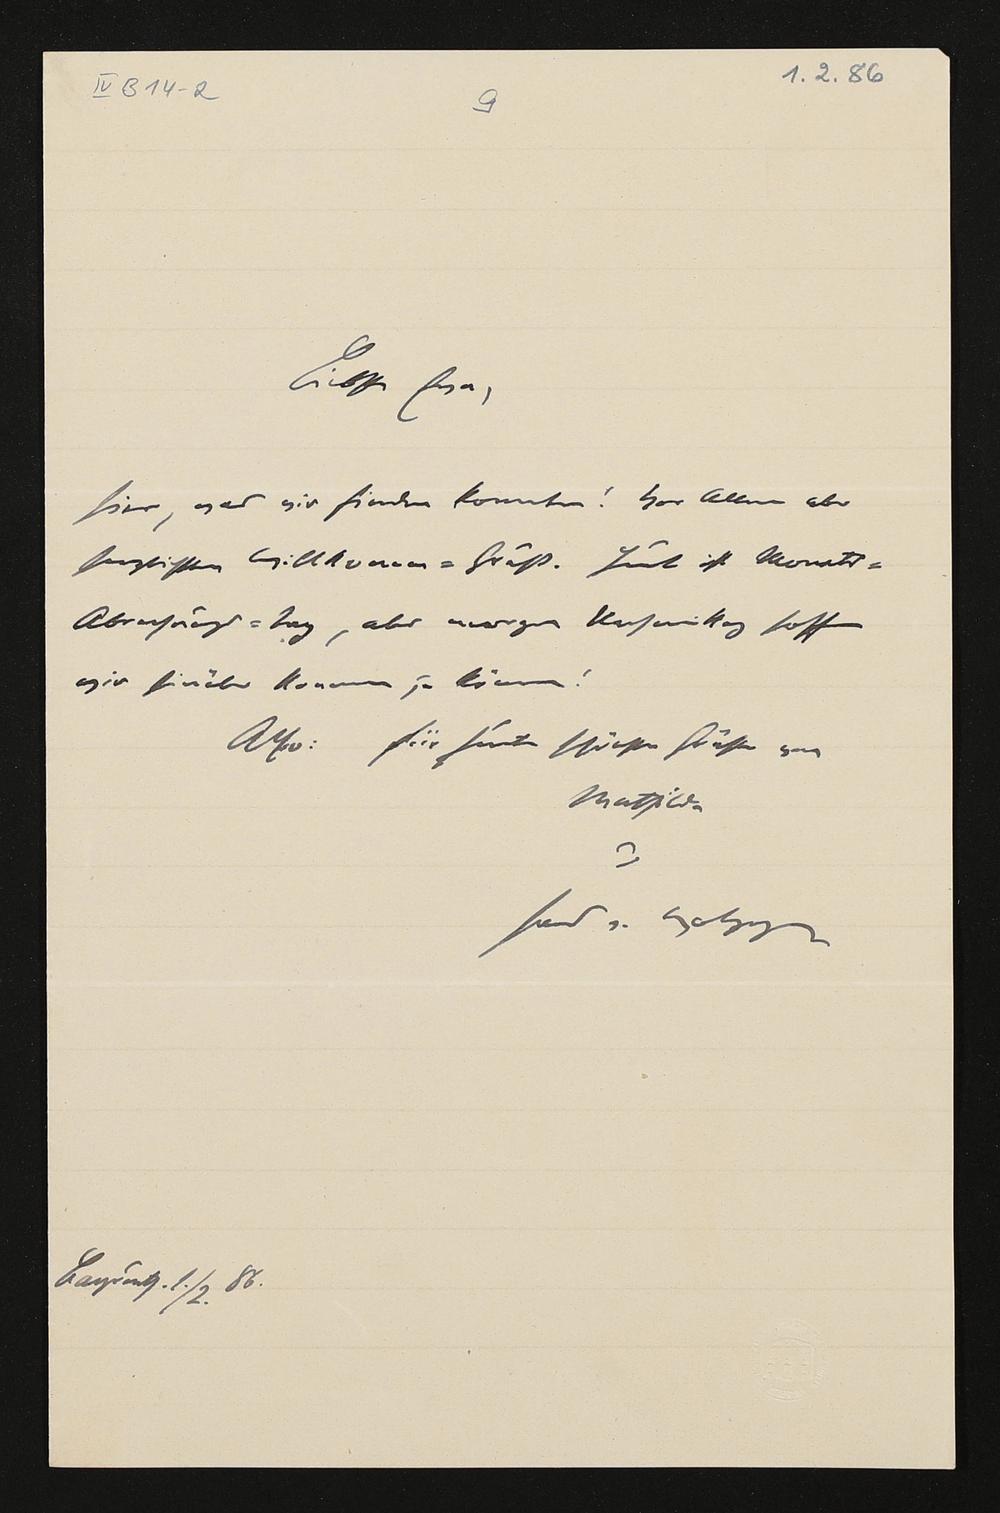 IV B 14-2
9
1. 2. 86
Liebste Eva,
hier, was wir finden konnten! Vor Allem aber
herzlichsten Willkommen=Gruß. Heut ist Monats=
tag, aber morgen Nachmittag hoffen
wir hinüber kommen zu können!
Also: für heute schönste Grüße von
Mathilde
u
Hans v. Wolzogen
Bayreuth. 1./2. 86.